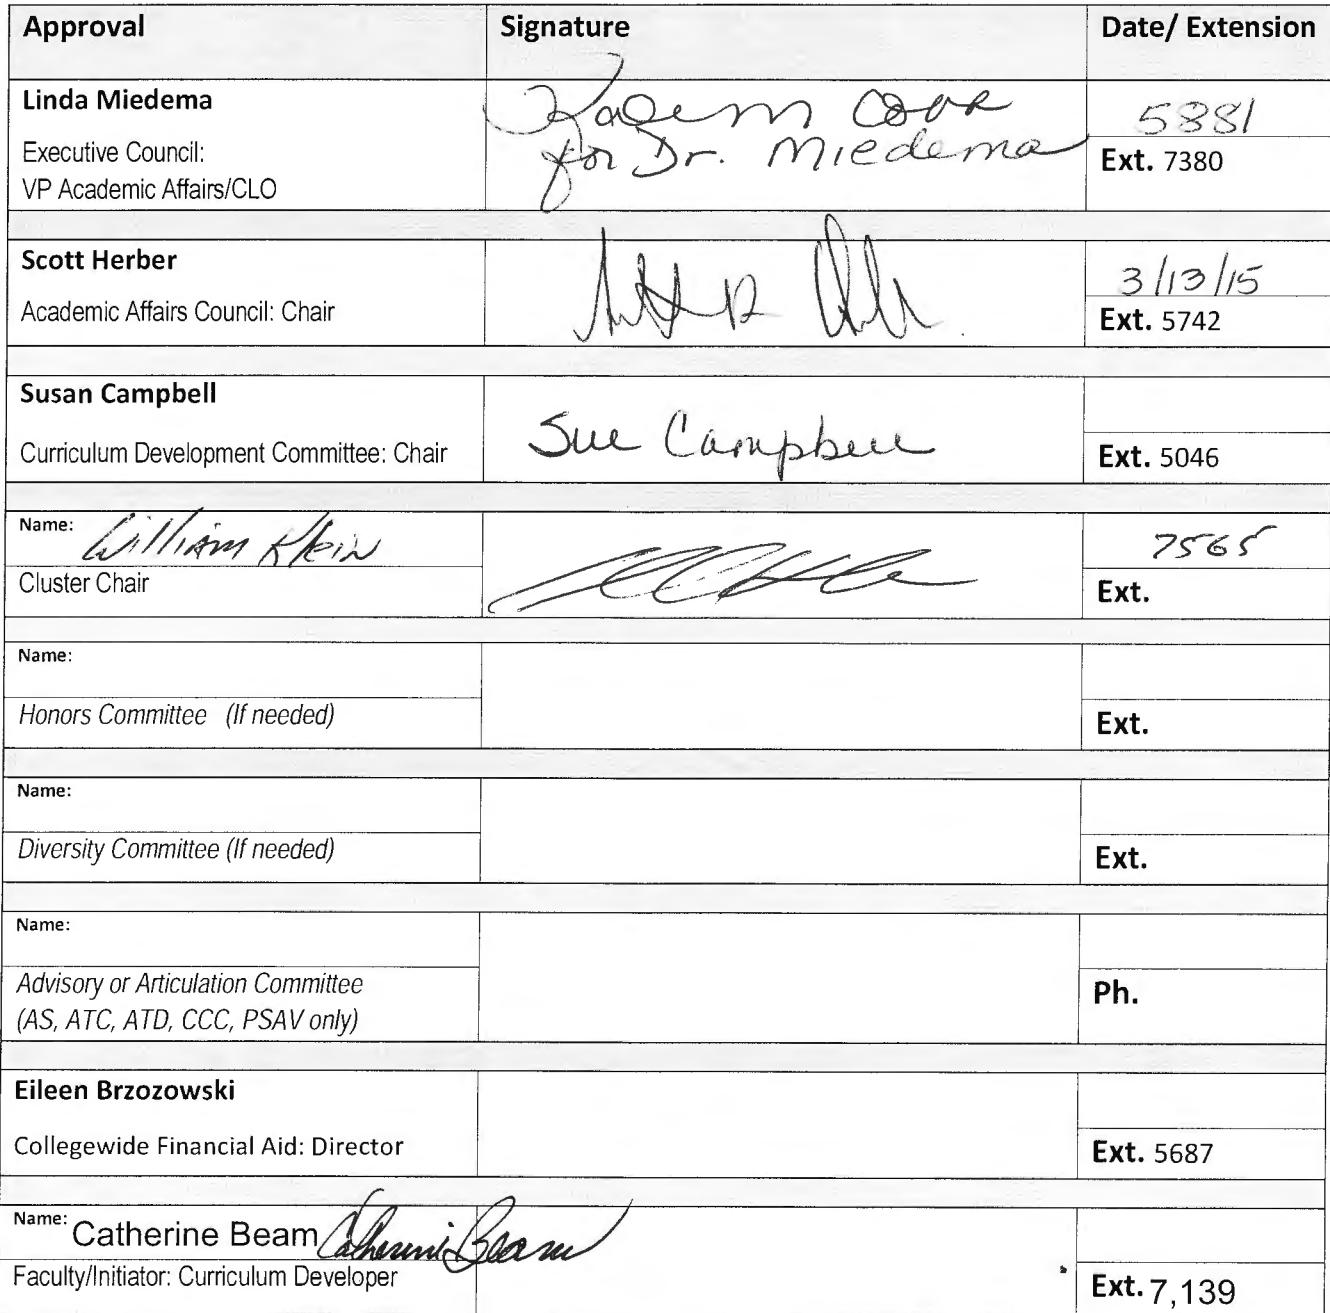 Approval Signature Date/ Extension
Linda Miedema
Executive Council:
VP Academic Affairs/CLO
Cook
for Dr. Miedema
5881
Ext. 7380
Scott Herber
Academic Affairs Council: Chair
3/13/15
Ext. 5742
Susan Campbell
Curriculum Development Committee: Chair
Sue Campbell
Ext. 5046
Name: William Klein
Cluster Chair
7565
Ext.
Name:
Honors Committee (If needed)
Ext.
Name:
Diversity Committee (If needed)
Ext.
Name:
Advisory or Articulation Committee
(AS, ATC, ATD, CCC, PSAV only)
Ph.
Eileen Brzozowski
Collegewide Financial Aid: Director
Ext. 5687
Name: Catherine Beam Catherine Beam
Faculty/Initiator: Curriculum Developer
Ext. 7,139